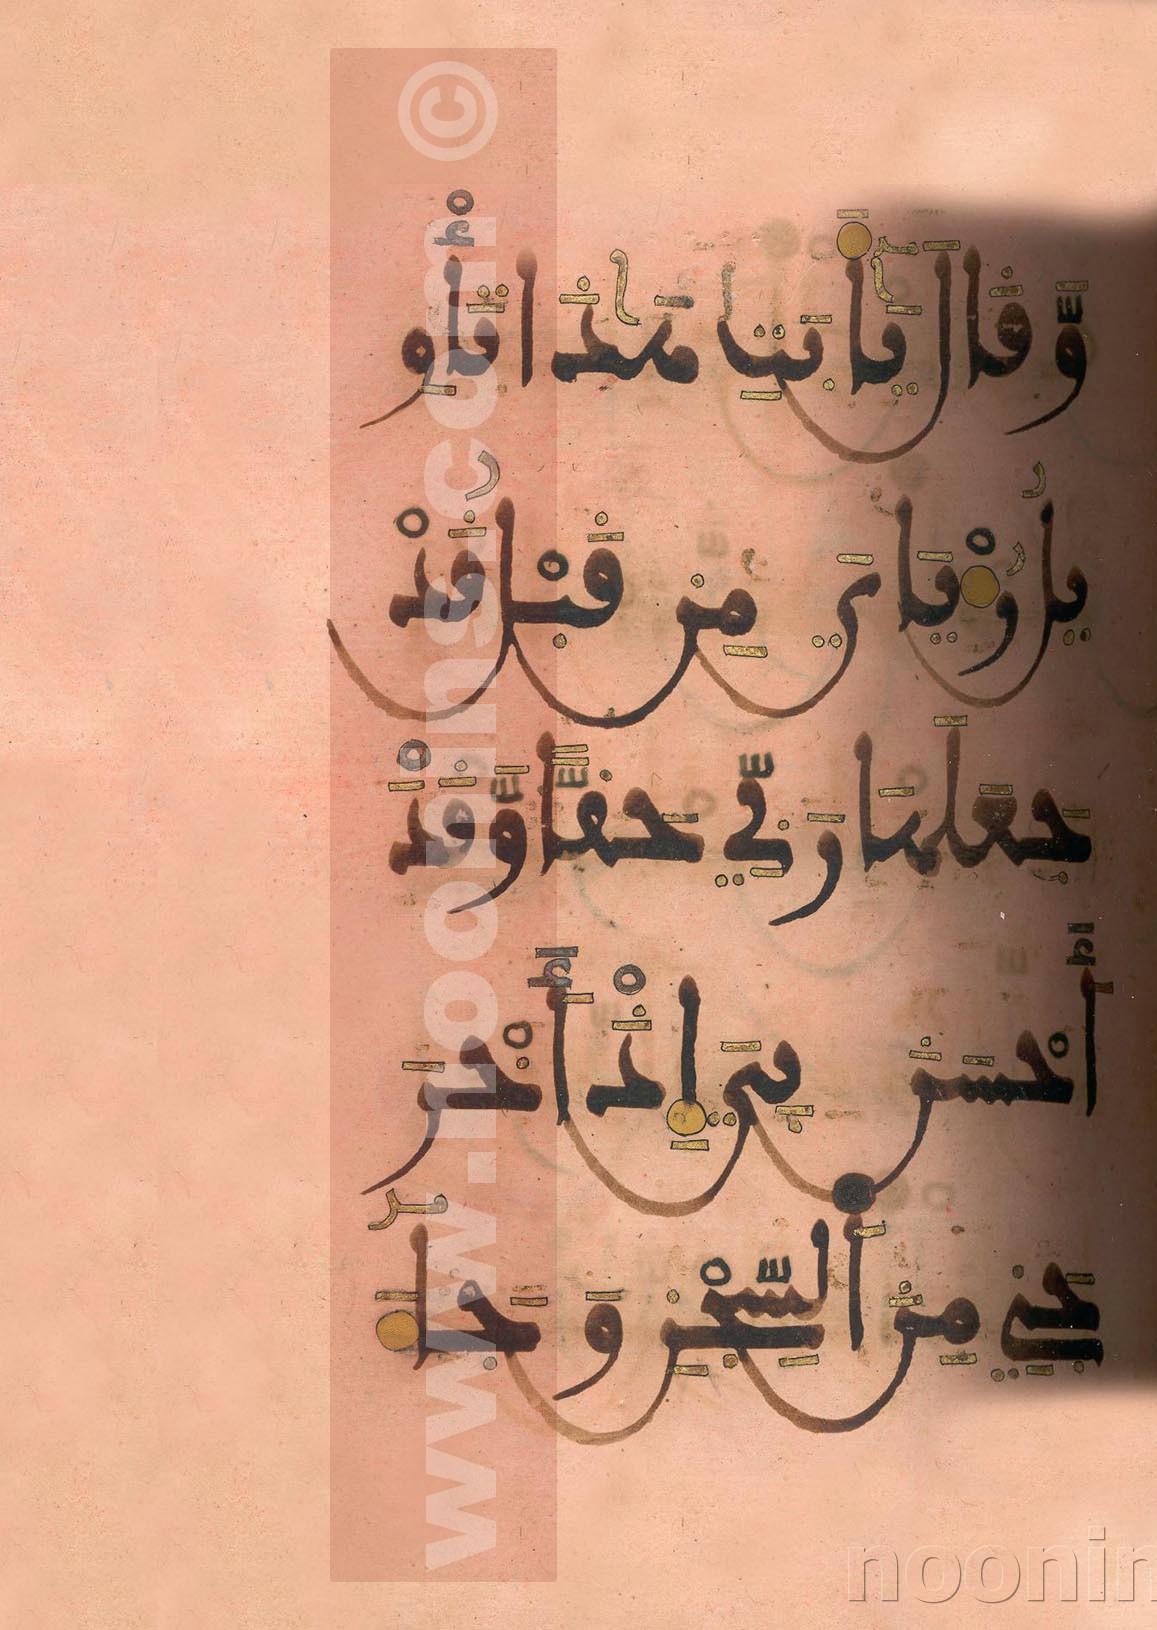 وَّقَالَ يَٰأَبَتِ هَٰذَا تَاوِ
يلُ رُءْيَٰيَ مِن قَبْلُ قَدْ
جَعَلَهَا رَبِّي حَقّٗا وَّقَدْ
أَحْسَنَ بِيَ إِذْ أَخْرَ
جَنِي مِنَ ٱلسِّجْنِ وَجَآءَ
www.noonins.com ©
noonin